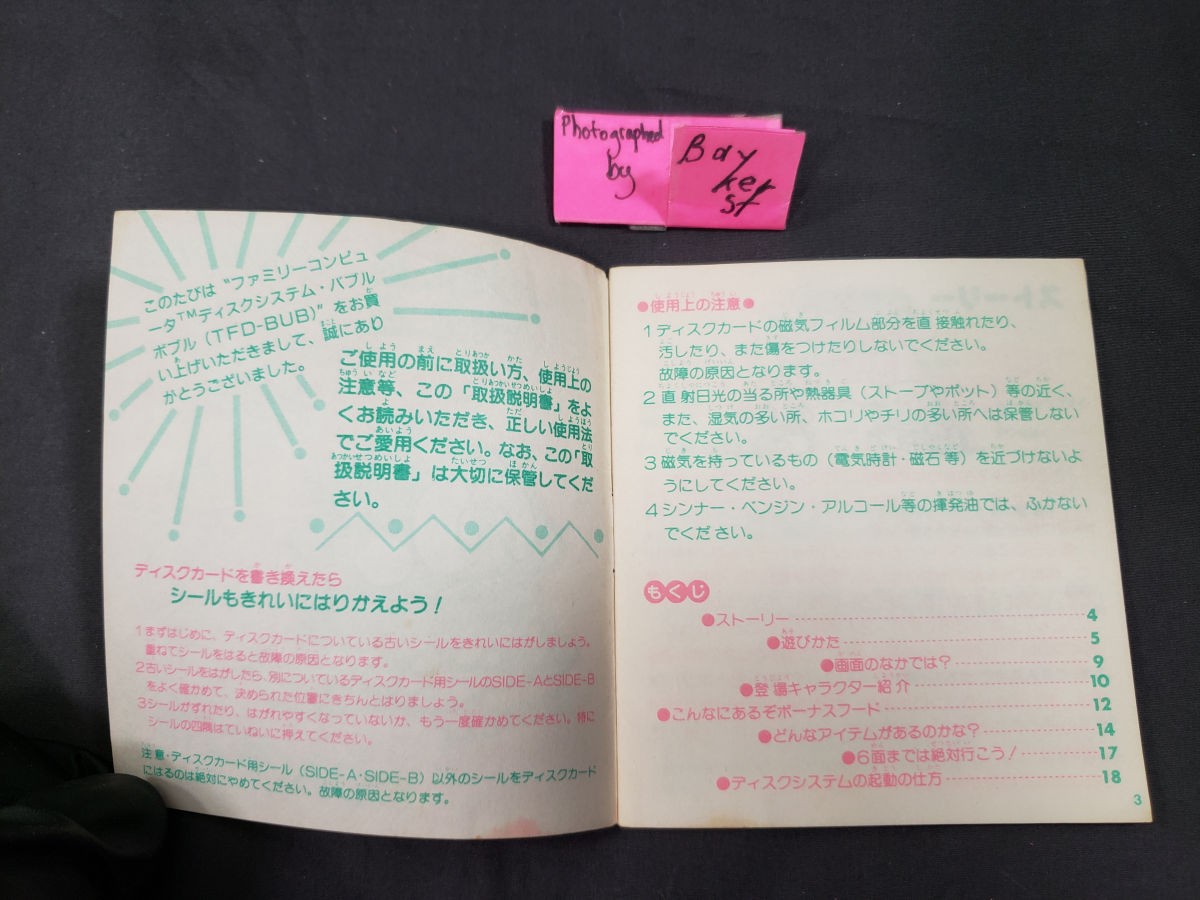 Photographed
by
Bay
ker
st
このたびは“ファミリーコンピュ
ータTMディスクシステム・バブル
ボブル（TFD-BUB）”をお買
い上げいただきまして、誠にあり
がとうございました。
ご使用の前に取扱い方、使用上の
注意等、この「取扱説明書」をよ
くお読みいただき、正しい使用法
でご愛用ください。なお、この「取
扱説明書」は大切に保管してくだ
さい。
ディスクカードを書き換えたら
シールもきれいにはりかえよう！
1まずはじめに、ディスクカードについている古いシールをきれいにはがしましょう。
重ねてシールをはると故障の原因となります。
2古いシールをはがしたら、別についているディスクカード用シールのSIDE-AとSIDE-B
をよく確かめて、決められた位置にきちんとはりましょう。
3シールがずれたり、はがれやすくなっていないか、もう一度確かめてください。特に
シールの四隅はていねいに押えてください。
注意・ディスクカード用シール（SIDE-A・SIDE-B）以外のシールをディスクカード
にはるのは絶対にやめてください。故障の原因となります。
●使用上の注意●
1ディスクカードの磁気フィルム部分を直接触れたり、
汚したり、また傷をつけたりしないでください。
故障の原因となります。
2直射日光の当る所や熱器具（ストーブやポット）等の近く、
また、湿気の多い所、ホコリやチリの多い所へは保管しない
でください。
3磁気を持っているもの（電気時計・磁石等）を近づけないよ
うにしてください。
4シンナー・ベンジン・アルコール等の揮発油では、ふかない
でください。
もくじ
●ストーリー 4
●遊びかた 5
●画面のなかでは？ 9
●登場キャラクター紹介 10
●こんなにあるぞボーナスフード 12
●どんなアイテムがあるのかな？ 14
●6面までは絶対行こう！ 17
●ディスクシステムの起動の仕方 18
3